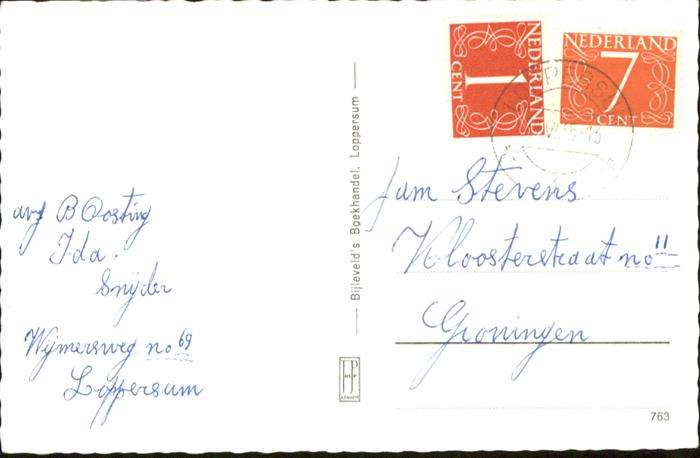 NEDERLAND
1
CENT
NEDERLAND
7
CENT
Bijleveld's Boekhandel, Loppersum
B Oosting
Ida.
Snijder
Wijmersweg no 69
Loppersum
fam Stevens
Kloosterstraat no 11
Groningen
JP
763